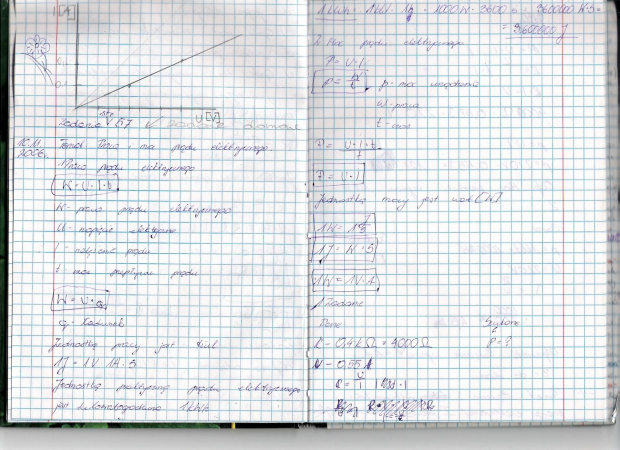 I [A]
U [V]
Zadanie 57 zadanie domowe
16.11.2006r. Temat: Praca i moc prądu elektrycznego.
Praca prądu elektrycznego
W = U · I · t
W - praca prądu elektrycznego
U - napięcie elektryczne
I - natężenie prądu
t - czas przepływu prądu
W = U · q
q - ładunek
Jednostką pracy jest dżul
1J = 1V 1A · s
Jednostką praktyczną prądu elektrycznego
jest kilowatogodzina 1kWh
1kWh = 1kW · 1h = 1000W · 3600s = 3600000 W·s =
= 3600000 J
2. Moc prądu elektrycznego
P = U · I
P = W/t
p - moc urządzenia
W - praca
t - czas
P = U · I · t / t
P = U · I
Jednostką mocy jest wat [W]
1W = 1 J/s
1J = W · s
1W = 1V · A
1 Zadanie
Dane Szukane
R - 0,4kΩ = 4000Ω P = ?
0,55 A